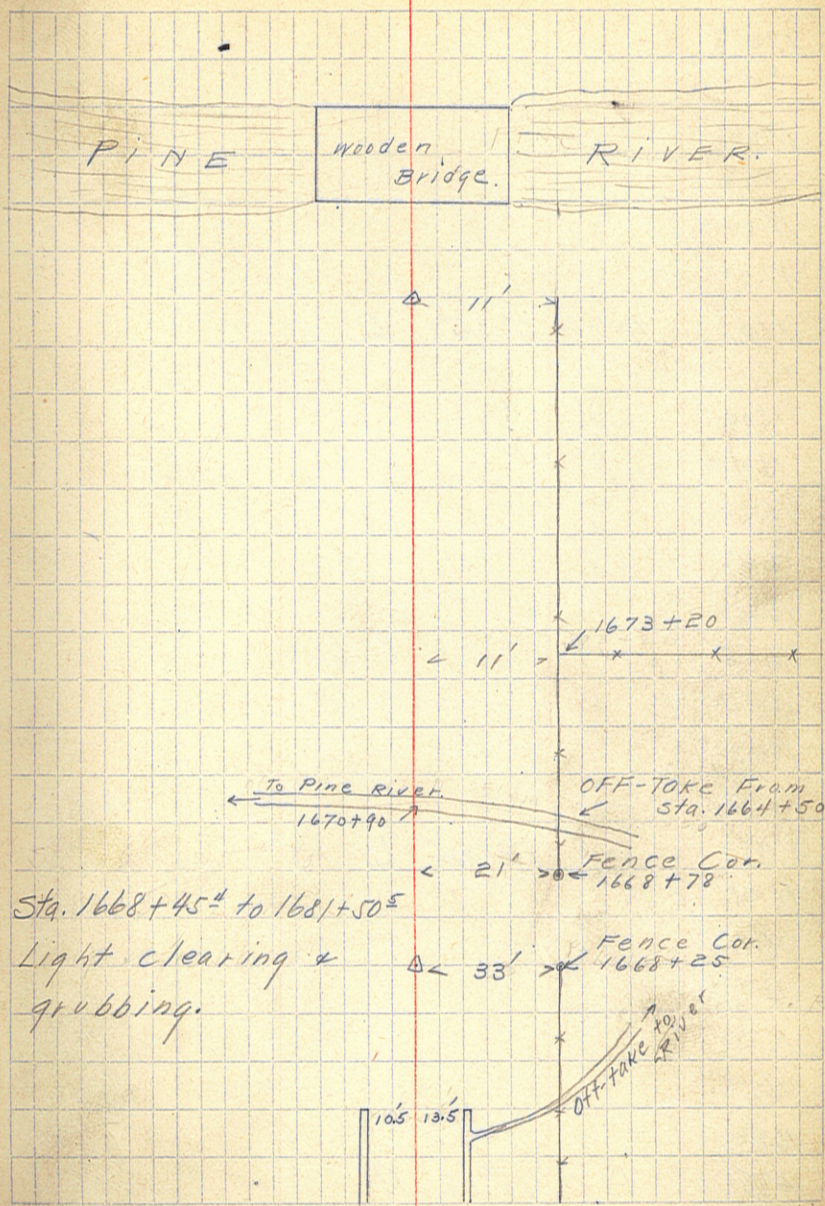 PINE
Wooden
Bridge.
RIVER.
11'
1673+20
11'
To Pine River.
1670+90
OFF-Take From
Sta. 1664+50
21'
Fence Cor.
1668+78
Sta. 1668+45⁴ to 1681+50⁵
Light clearing &
grubbing.
33'
Fence Cor.
1668+25
Off-take to
River
10.5' 13.5'